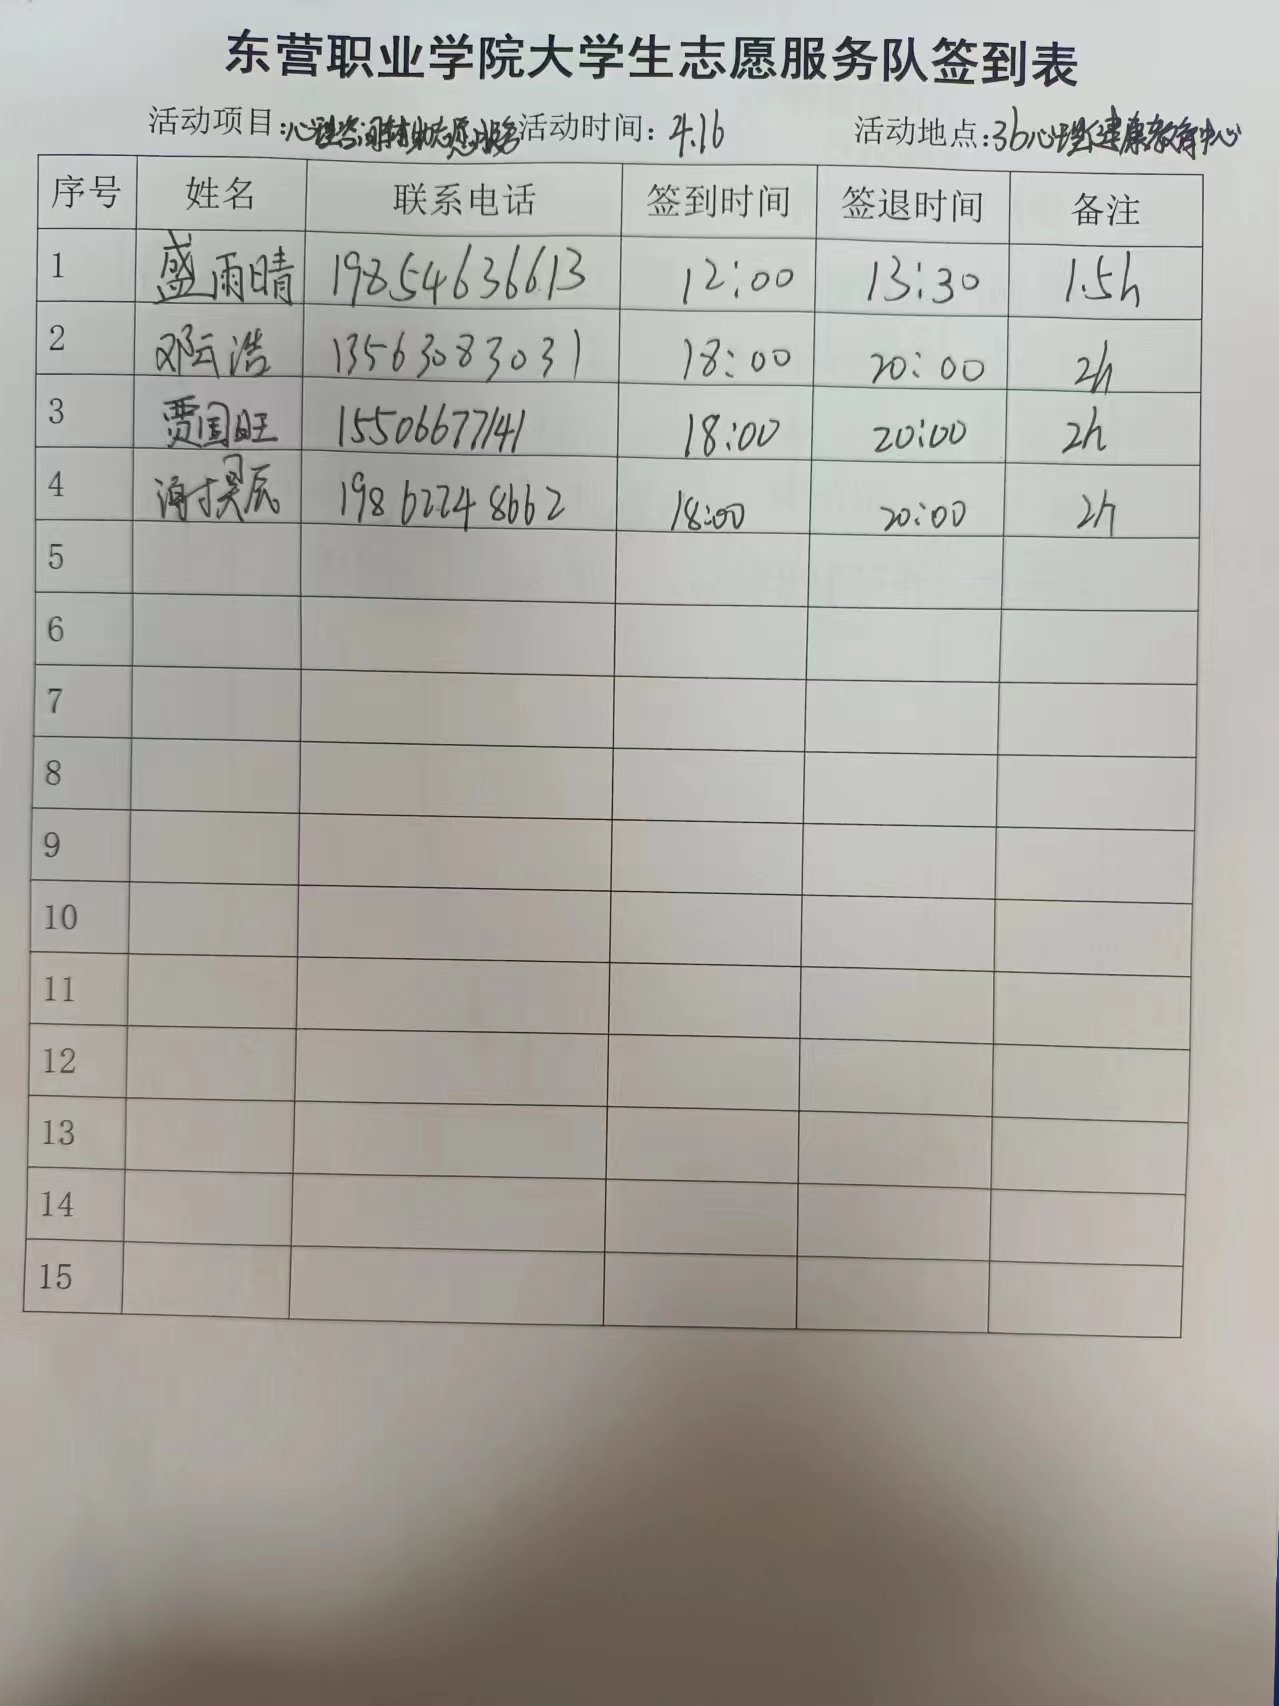 东营职业学院大学生志愿服务队签到表
活动项目:心理咨询 志愿服务 活动时间: 4.16 活动地点:36心理健康教育中心
序号 姓名 联系电话 签到时间 签退时间 备注
1 盛雨晴 19854636613 12:00 13:30 1.5h
2 邓云浩 13563083031 18:00 20:00 2h
3 贾国旺 15506677141 18:00 20:00 2h
4 谢昊辰 19862248662 18:00 20:00 2h
5
6
7
8
9
10
11
12
13
14
15